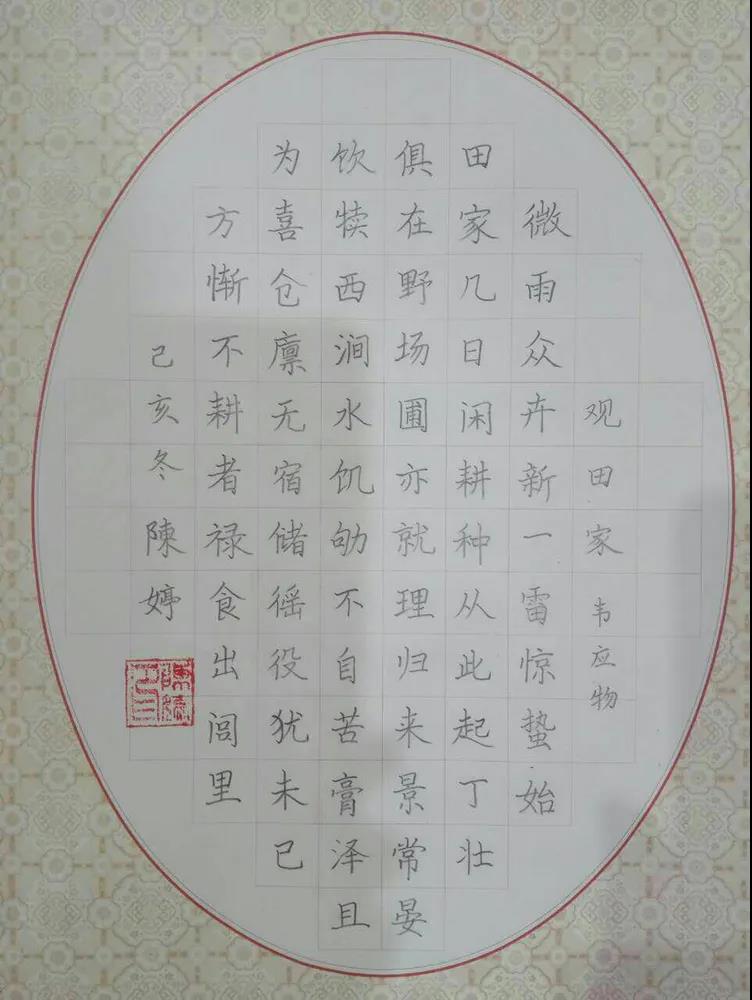 观田家 韦应物
微雨众卉新一雷惊蛰始
田家几日闲耕种从此起丁壮
俱在野场圃亦就理归来景常晏
饮犊西涧水饥劬不自苦膏泽且
为喜仓廪无宿储徭役犹未已
方惭不耕者禄食出闾里
己亥冬 陳婷